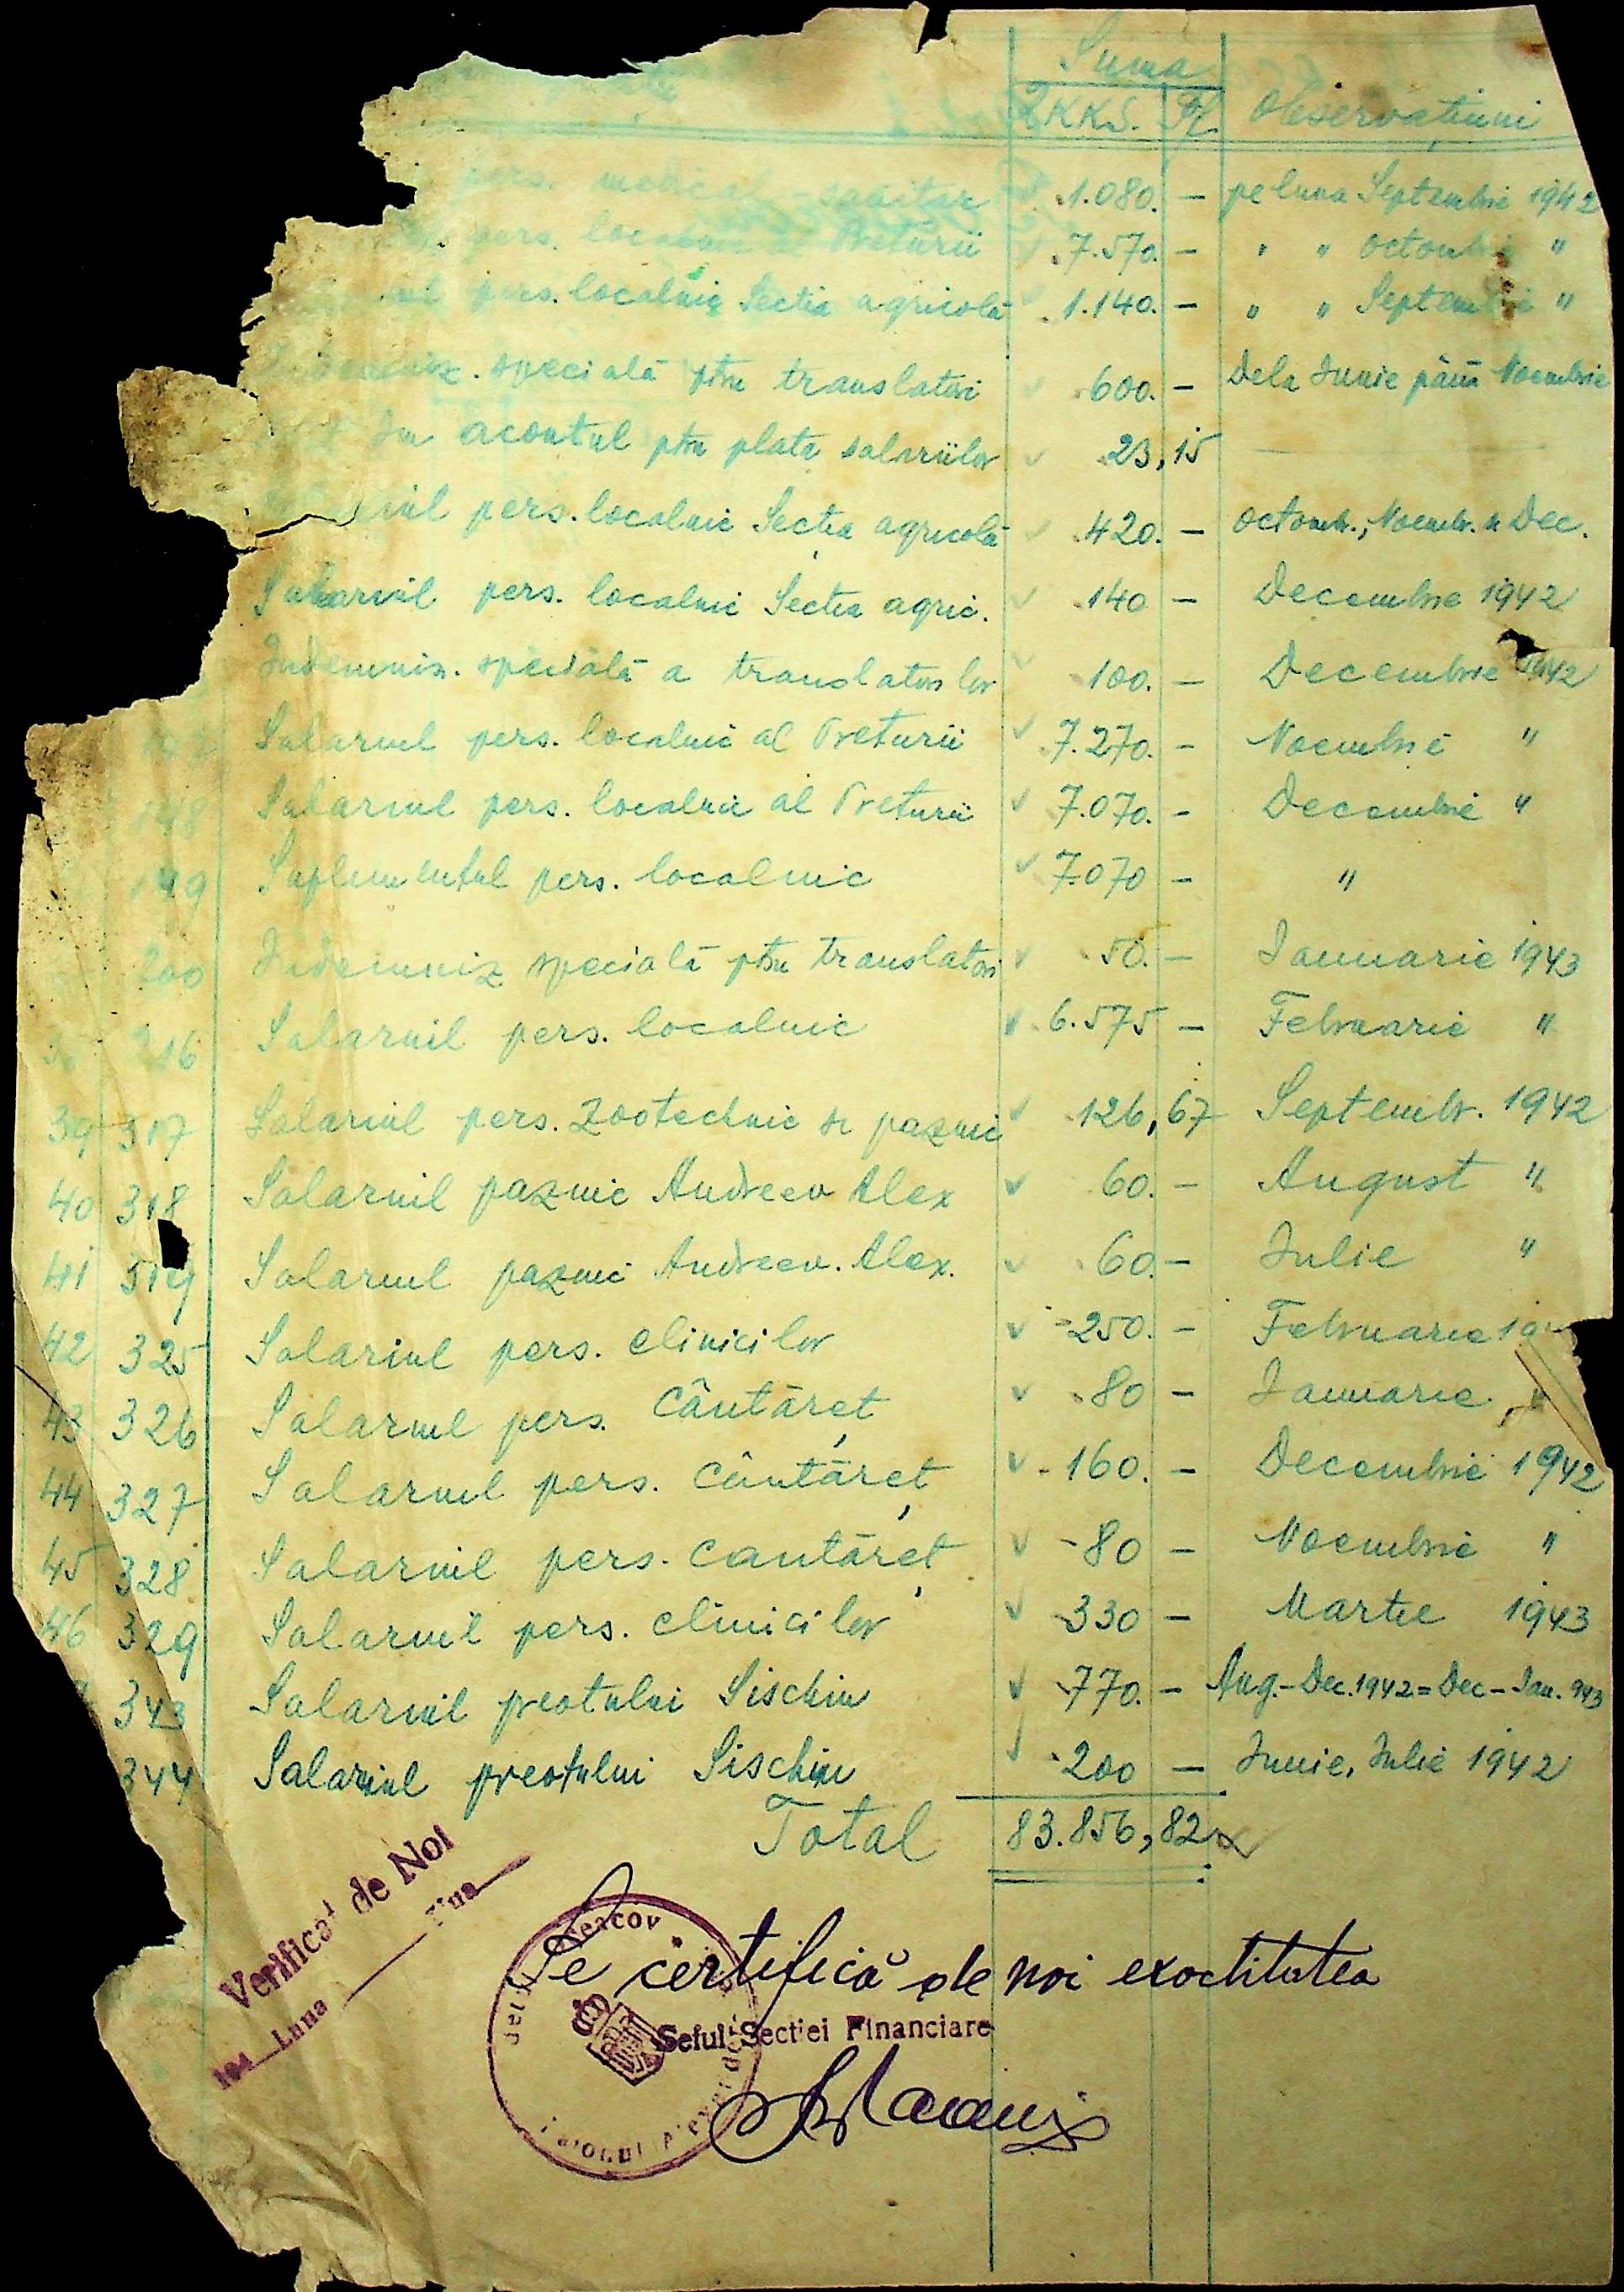 Suma
RKKS. Pf. Observațiuni
pers. medical sanitar 1.080. — pe luna Septembrie 1942
pers. localnic Preturii 7.570. — " " Octombrie "
pers. localnic Secția agricolă 1.140. — " " Septembrie "
specială ptru translatori 600. — Dela Iunie până Noembrie
acontul ptru plata salariilor 23,15
pers. localnic Secția agricolă 420. — Octomb., Noembr. și Dec.
Salariul pers. localnic Secția agric. 140 — Decembrie 1942
Indemniz. specială a translatorilor 100. — Decembrie 1942
Salariul pers. localnic al Preturii 7.270. — Noembrie "
148 Salariul pers. localnic al Preturii 7.070. — Decembrie "
149 Suplimentul pers. localnic 7.070 — "
200 Indemniz specială ptru translatori 50. — Ianuarie 1943
216 Salariul pers. localnic 6.575 — Februarie "
39 317 Salariul pers. Zootechnic și paznic 126,67 Septembr. 1942
40 318 Salariul paznic Andreev Alex 60. — August "
41 319 Salariul paznic Andreev. Alex. 60. — Iulie "
42 325 Salariul pers. clinicilor 250. — Februarie
43 326 Salariul pers. Cântăreț 80 — Ianuarie "
44 327 Salariul pers. Cântăreț 160. — Decembrie 1942
45 328 Salariul pers. cantăreț 80 — Noembrie "
46 329 Salariul pers. clinicilor 330 — Martie 1943
343 Salariul preotului Sischin 770. — Aug.-Dec.1942=Dec-Ian. 943
344 Salariul preotului Sischin 200 — Iunie, Iulie 1942
Total 83.856,82
Verificat de Noi
194 Luna Ziua
Se certifică de noi exactitatea
Seful Sectiei Financiare